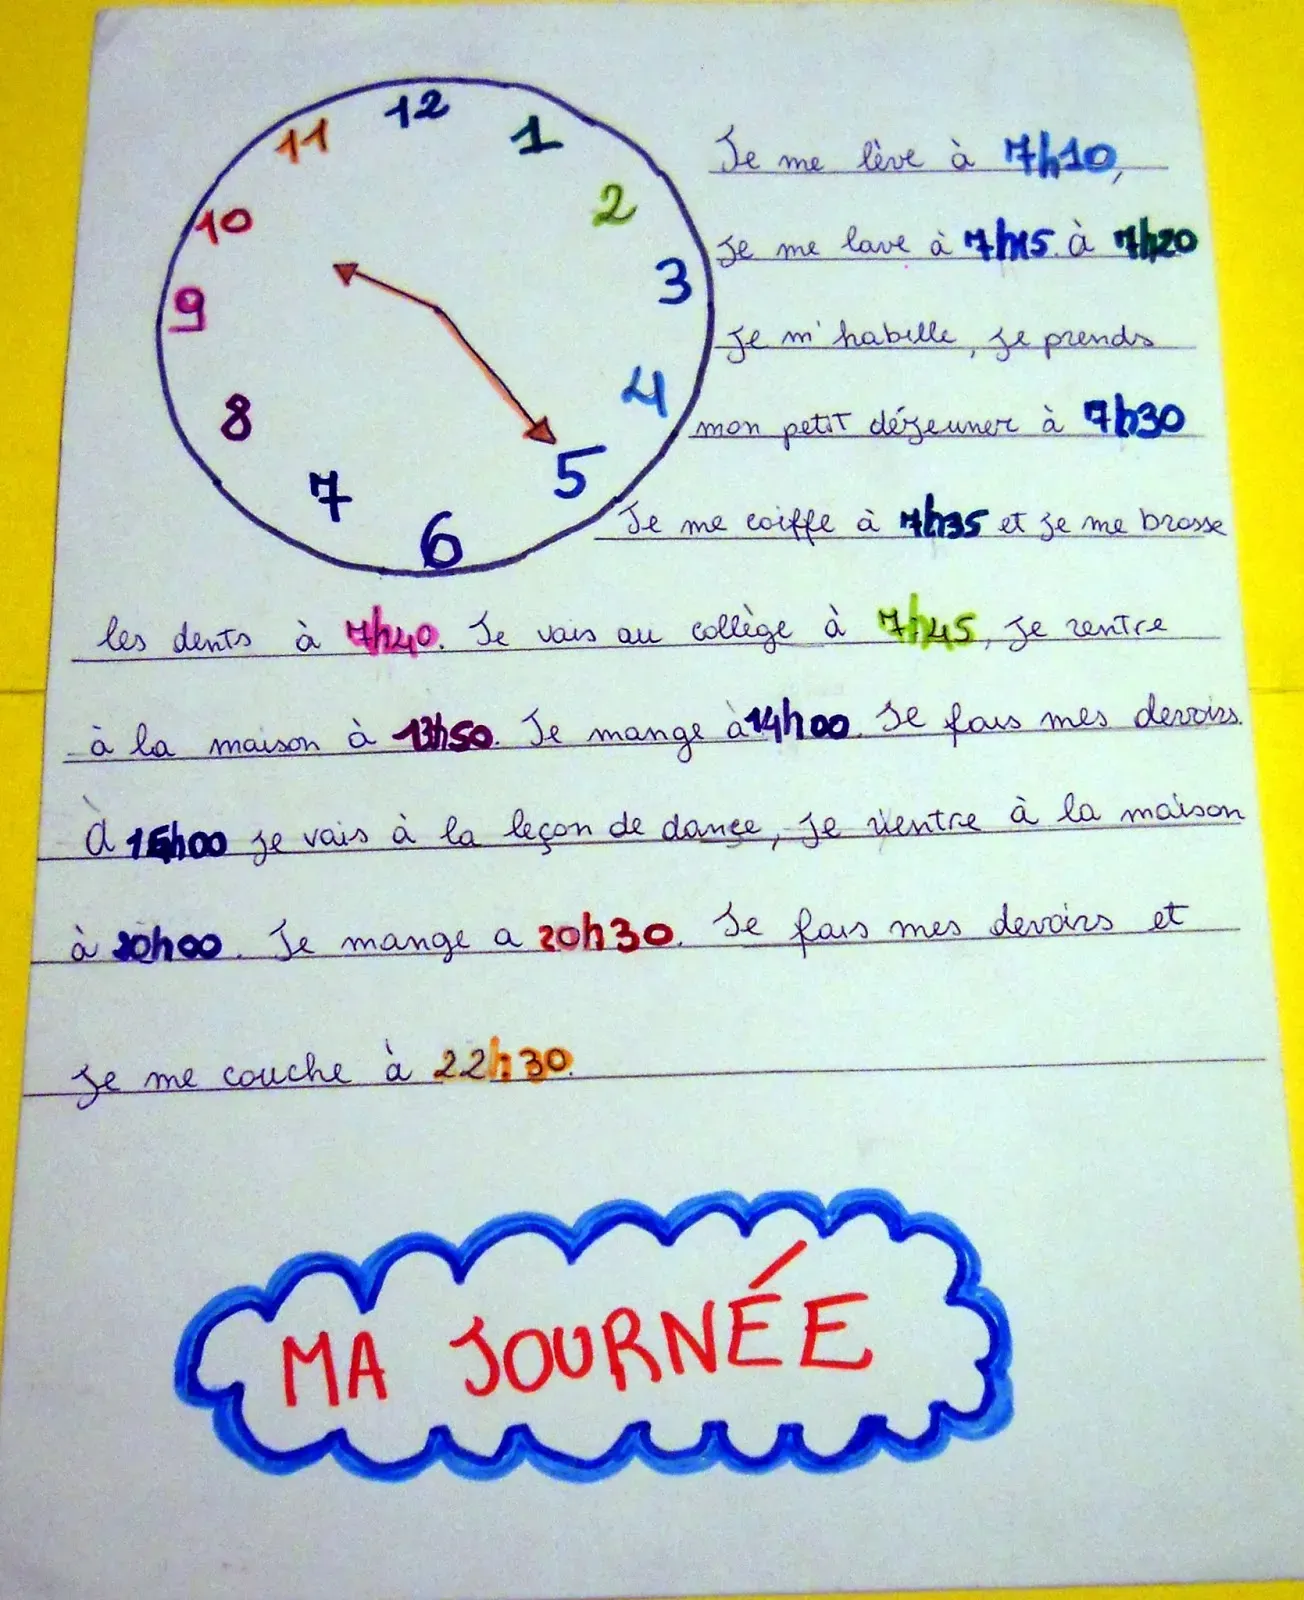 12
11
1
10
2
9
3
8
4
7
5
6
Je me lève à 7h10,
Je me lave à 7h15. à 7h20
Je m'habille, je prends
mon petit déjeuner à 7h30
Je me coiffe à 7h35 et je me brosse
les dents à 7h40. Je vais au collège à 7h45, je rentre
à la maison à 13h50. Je mange à 14h00. Je fais mes devoirs.
À je vais à la leçon de danse, je rentre à la maison
à 20h00. Je mange a 20h30. Je fais mes devoirs et
je me couche à 22h:30.
MA JOURNÉE